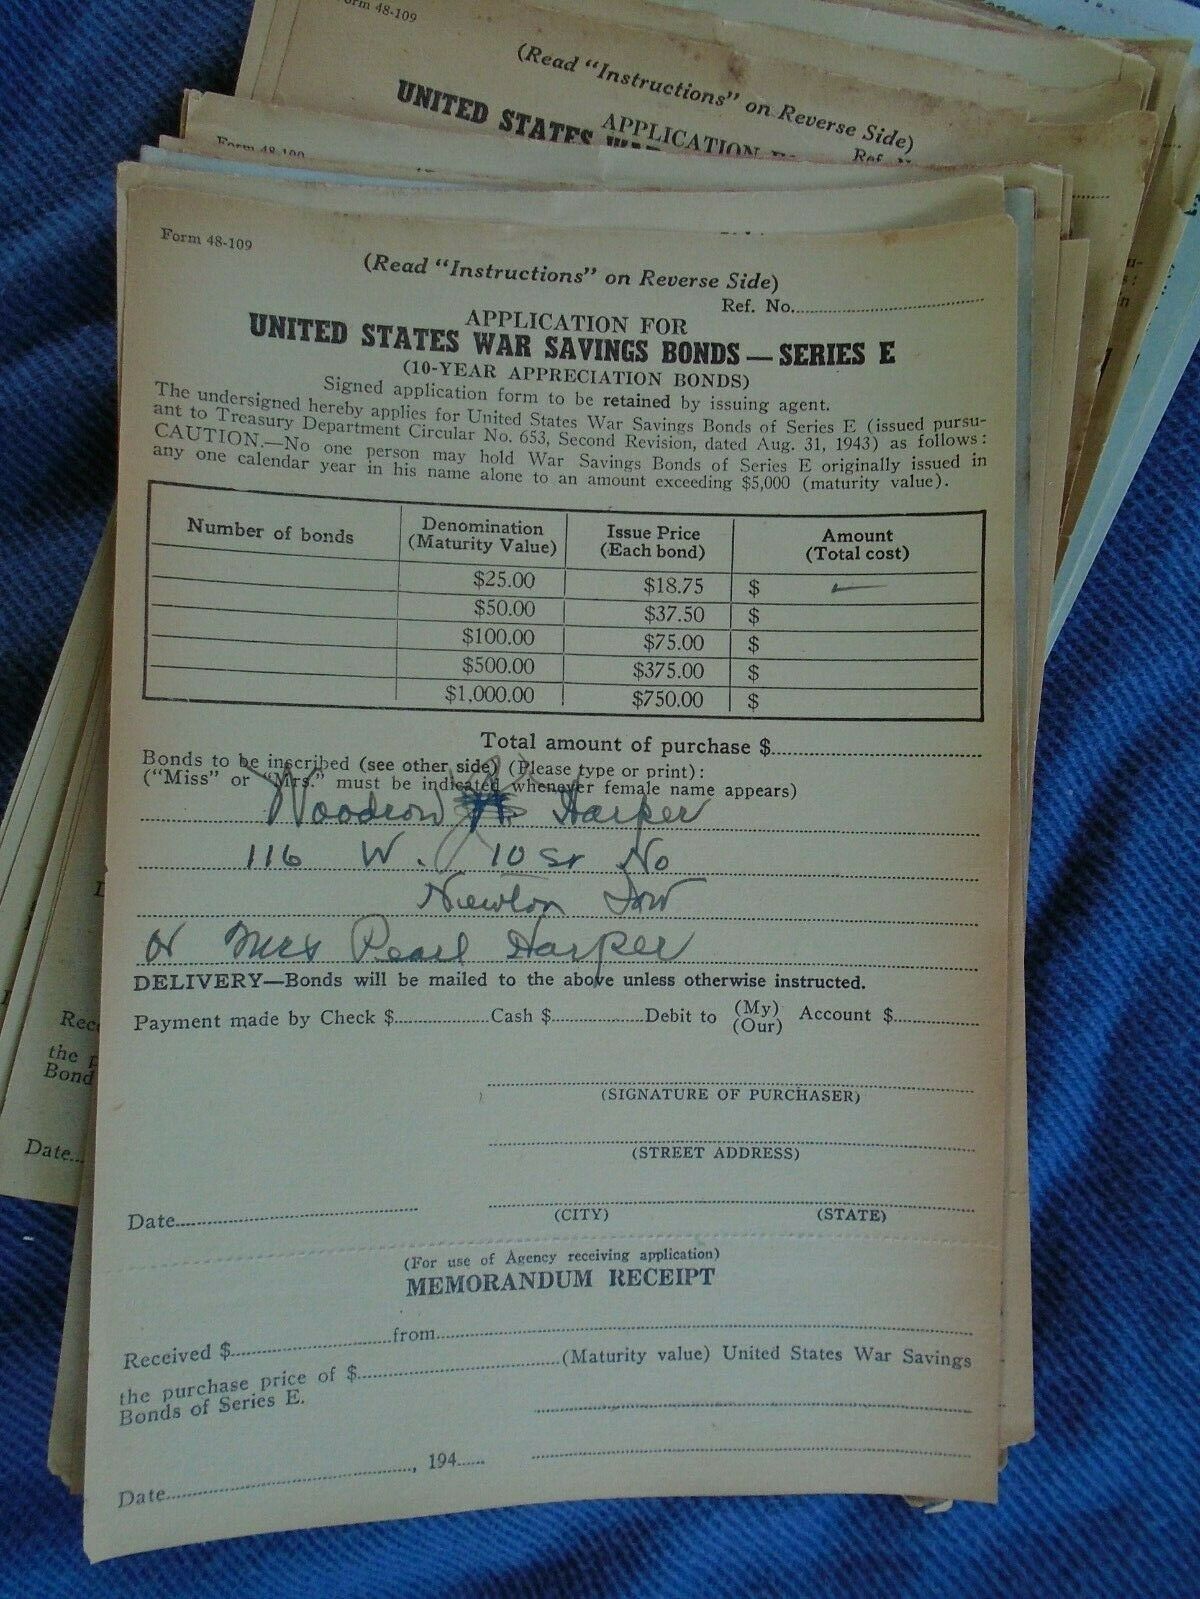 Form 48-109
(Read "Instructions" on Reverse Side)
UNITED STATES WAR
APPLICATION
Ref.
Form 48-109
Form 48-109
(Read "Instructions" on Reverse Side)
Ref. No.
APPLICATION FOR
UNITED STATES WAR SAVINGS BONDS — SERIES E
(10-YEAR APPRECIATION BONDS)
Signed application form to be retained by issuing agent.
The undersigned hereby applies for United States War Savings Bonds of Series E (issued pursu-
ant to Treasury Department Circular No. 653, Second Revision, dated Aug. 31, 1943) as follows:
CAUTION.—No one person may hold War Savings Bonds of Series E originally issued in
any one calendar year in his name alone to an amount exceeding $5,000 (maturity value).
Number of bonds Denomination (Maturity Value) Issue Price (Each bond) Amount (Total cost)
$25.00 $18.75 $
$50.00 $37.50 $
$100.00 $75.00 $
$500.00 $375.00 $
$1,000.00 $750.00 $
Total amount of purchase $
Bonds to be inscribed (see other side) (Please type or print):
("Miss" or "Mrs." must be indicated whenever female name appears)
Woodrow Harper
116 W. 10 St No
Newton
or Mrs Pearl Harper
DELIVERY—Bonds will be mailed to the above unless otherwise instructed.
Payment made by Check $ Cash $ Debit to (My) (Our) Account $
(SIGNATURE OF PURCHASER)
(STREET ADDRESS)
Date
(CITY) (STATE)
(For use of Agency receiving application)
MEMORANDUM RECEIPT
Received $ from
the purchase price of $ (Maturity value) United States War Savings
Bonds of Series E.
Date , 194
Rec
the p
Bond
Date